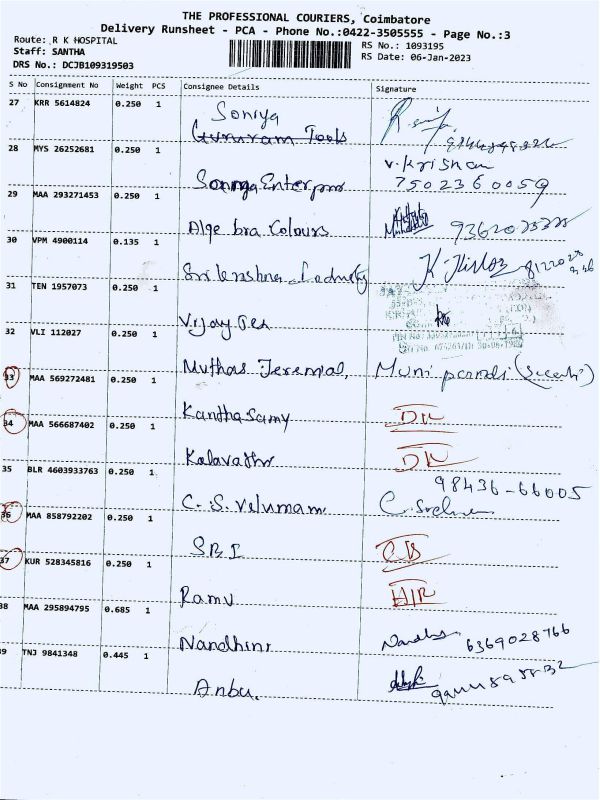 THE PROFESSIONAL COURIERS, Coimbatore
Delivery Runsheet - PCA - Phone No.:0422-3505555 - Page No.:3
Route: R K HOSPITAL
Staff: SANTHA
DRS No.: DCJB109319503
RS No.: 1093195
RS Date: 06-Jan-2023
S No Consignment No Weight PCS Consignee Details Signature
27 KRR 5614824 0.250 1 Soniya
Gururam Tools
28 MYS 26252681 0.250 1 V. Krishan
Soniya Enterprises 7502360059
29 MAA 293271453 0.250 1
Alge bra Colours
30 VPM 4900114 0.135 1
31 TEN 1957073 0.250 1
Vijay Tex
32 VLI 112027 0.250 1
33 MAA 569272481 0.250 1 Muthas Muni
Kanthasamy
34 MAA 566687402 0.250 1
Kalavathi
98436-66005
35 BLR 4603933763 0.250 1
C. S. Velumani
36 MAA 858792202 0.250 1
SBI
37 KUR 528345816 0.250 1
Ramu
38 MAA 295894795 0.685 1
Nandhini 6369028766
39 TNJ 9841348 0.445 1
Anbu.